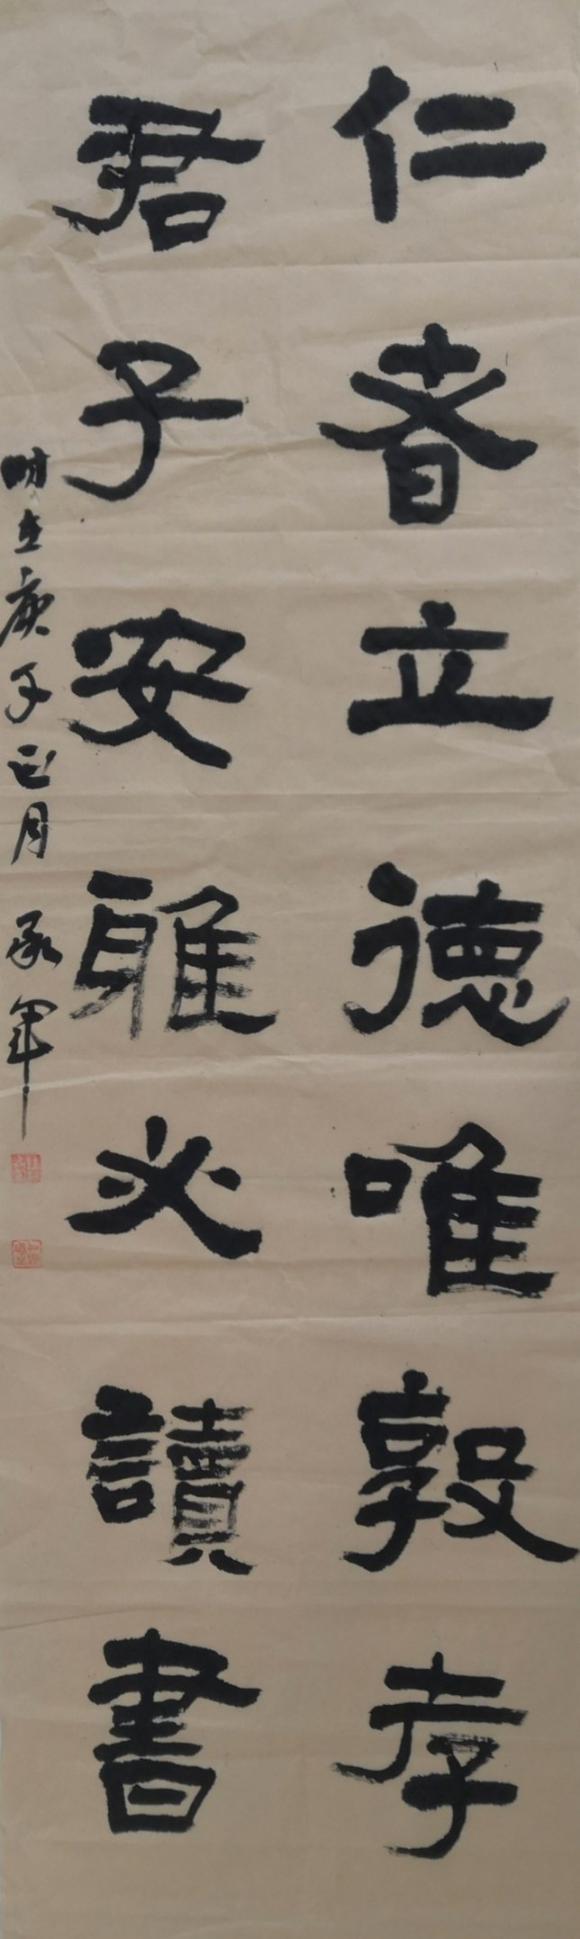 仁者立德唯敦孝
君子安雅必讀書
时在庚子正月承军